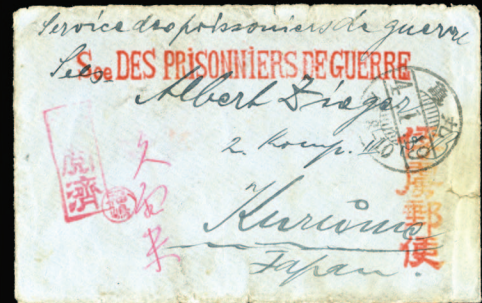 Service des prisonniers de guerre
Sce DES PRISONNIERS DE GUERRE
Albert
2. Komp.
Kurume
Japan.
久留米
濟
郵便